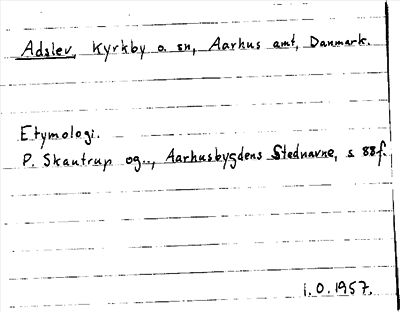 Adslev, Kyrkby o. sn, Aarhus amt, Danmark.
Etymologi.
P. Skautrup og.., Aarhusbygdens Stednavne, s 88f.
i.o.1957.